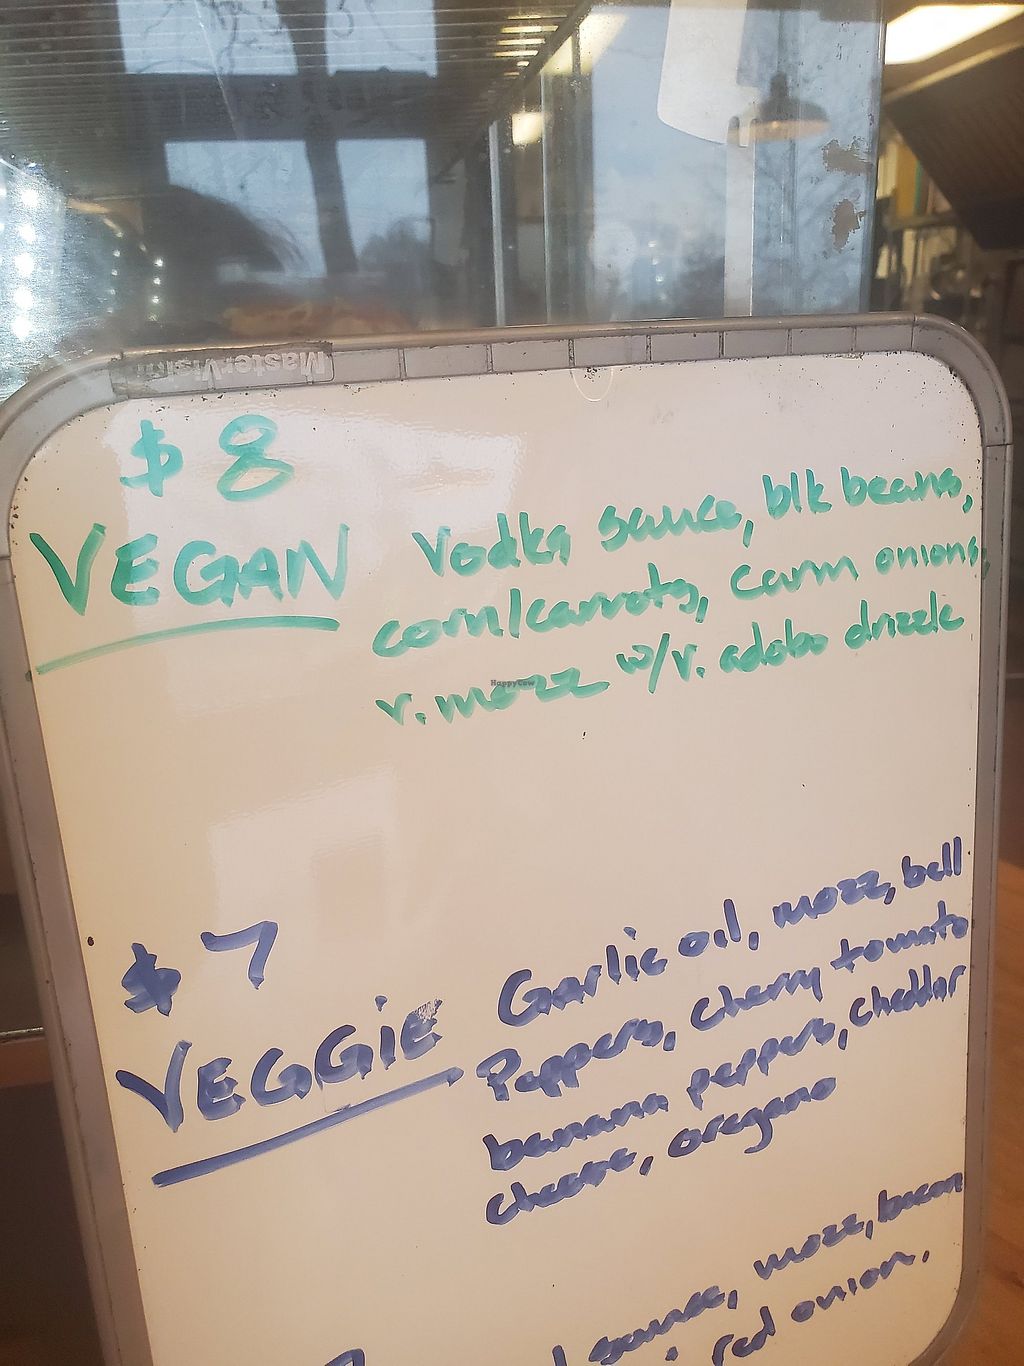 MasterVision
$8
VEGAN
Vodka sauce, blk beans,
corn/carrots, carm onions,
v. mozz w/v. adobo drizzle
HappyCow
$7
VEGGiE
Garlic oil, mozz, bell
Peppers, cherry tomato
banana peppers, cheddar
cheese, oregano
sauce, mozz, bacon
red onion.